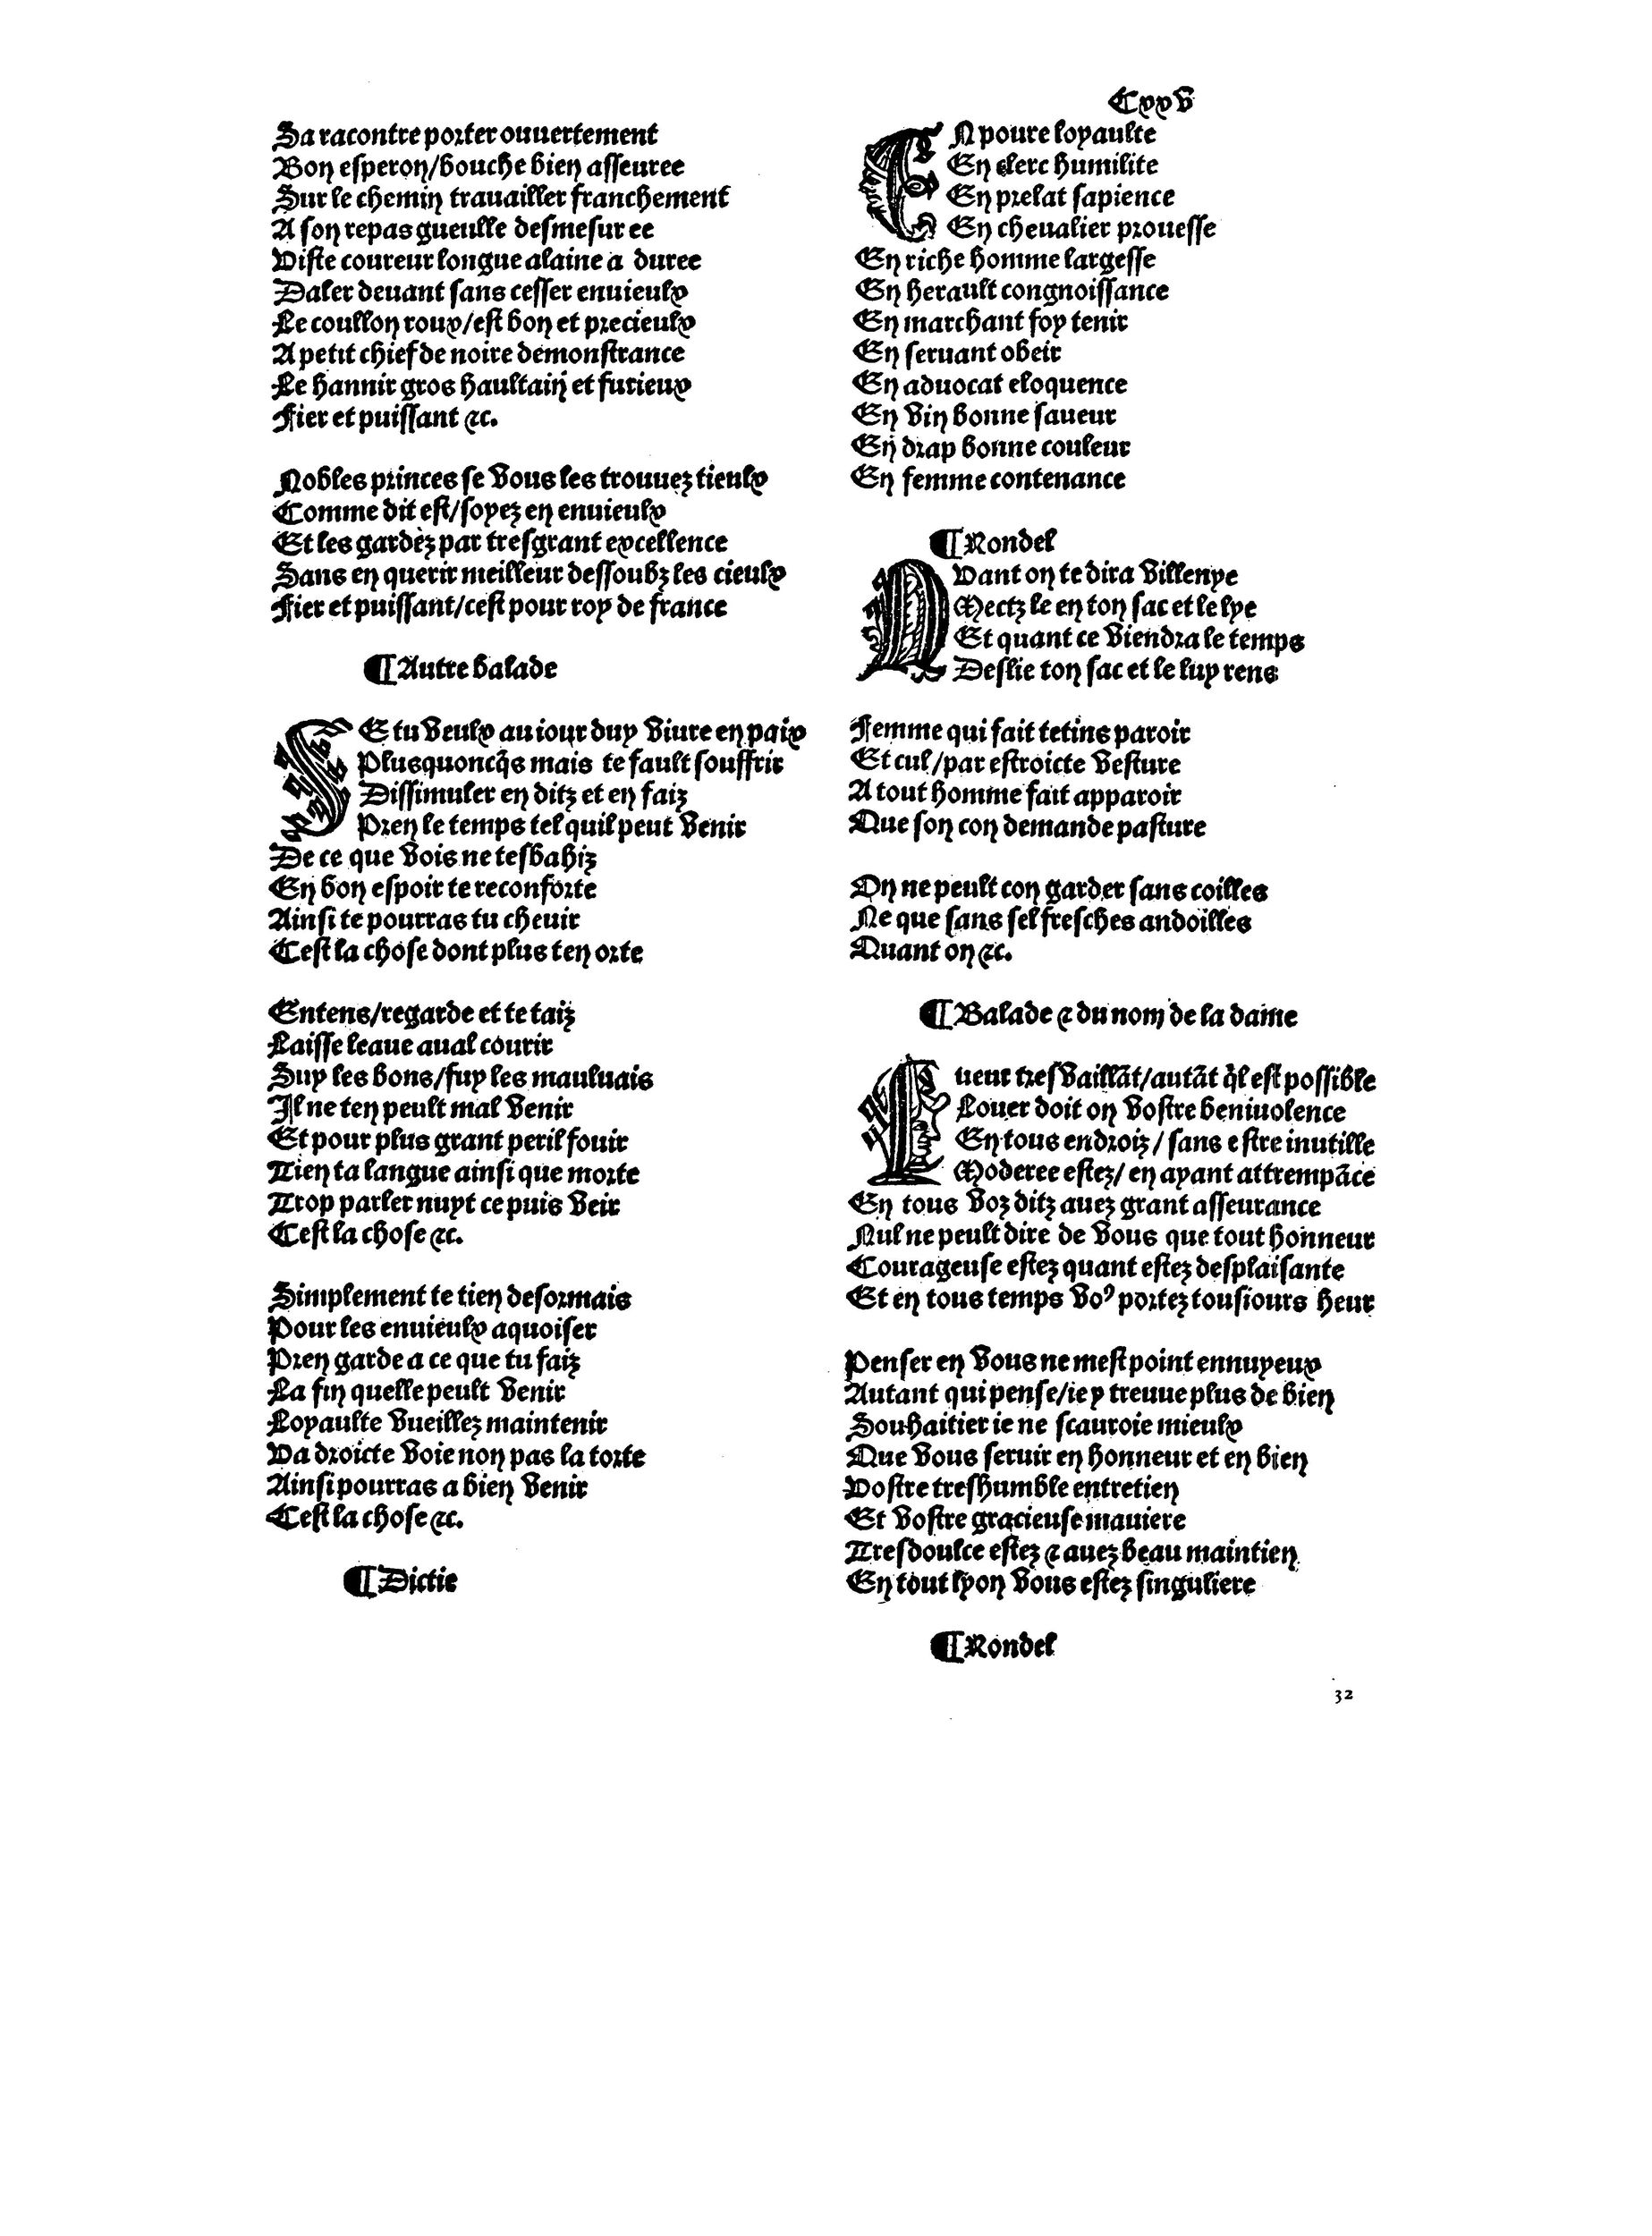 Cxxv
Sa racontre porter ouuertement
Bon esperon/bouche bien asseuree
Sur le chemin trauailler franchement
A son repas gueulle desmesuree
Viste coureur longue alaine a duree
Daler deuant sans cesser enuieulx
Le coullon roux/est bon et precieulx
A petit chief de noire demonstrance
Le hannir gros haultain et furieux
Fier et puissant ⁊c.
Nobles princes se vous les trouuez tieulx
Comme dit est/soyez en enuieulx
Et les gardez par tresgrant excellence
Sans en querir meilleur dessoubz les cieulx
Fier et puissant/cest pour roy de france
¶ Autre balade
SE tu veulx au iour duy viure en paix
Plusquoncq̃s mais te fault souffrir
Dissimuler en ditz et en faiz
Pren le temps tel quil peut venir
De ce que vois ne tesbahiz
En bon espoir te reconforte
Ainsi te pourras tu cheuir
Cest la chose dont plus ten orte
Entens/regarde et te taiz
Laisse leaue aual courir
Suy les bons/fuy les mauluais
Il ne ten peult mal venir
Et pour plus grant peril fouir
Tien ta langue ainsi que morte
Trop parler nuyt ce puis veir
Cest la chose ⁊c.
Simplement te tien desormais
Pour les enuieulx aquoiser
Pren garde a ce que tu faiz
La fin quelle peult venir
Loyaulte vueillez maintenir
Va droicte voie non pas la torte
Ainsi pourras a bien venir
Cest la chose ⁊c.
¶ Dictie
EN poure loyaulte
En clerc humilite
En prelat sapience
En cheualier prouesse
En riche homme largesse
En herault congnoissance
En marchant foy tenir
En seruant obeir
En aduocat eloquence
En vin bonne saueur
En drap bonne couleur
En femme contenance
¶ Rondel
QVant on te dira villenye
Mectz le en ton sac et le lye
Et quant ce viendra le temps
Deslie ton sac et le luy rens
Femme qui fait tetins paroir
Et cul/par estroicte vesture
A tout homme fait apparoir
Que son con demande pasture
On ne peult con garder sans coilles
Ne que sans sel fresches andoilles
Quant on ⁊c.
¶ Balade ⁊ du nom de la dame
Iueur tresvaillãt/autãt q̃l est possible
Louer doit on vostre beniuolence
En tous endroiz/sans estre inutille
Moderee estez/en ayant attrempãce
En tous voz ditz auez grant asseurance
Nul ne peult dire de vous que tout honneur
Courageuse estez quant estez desplaisante
Et en tous temps voꝰ portez tousiours heur
Penser en vous ne mest point ennuyeux
Autant qui pense/ie y treuue plus de bien
Souhaitier ie ne scauroie mieulx
Que vous seruir en honneur et en bien
Vostre treshumble entretien
Et vostre gracieuse maniere
Tresdoulce estez ⁊ auez beau maintien
En tout lyon vous estez singuliere
¶ Rondel
32